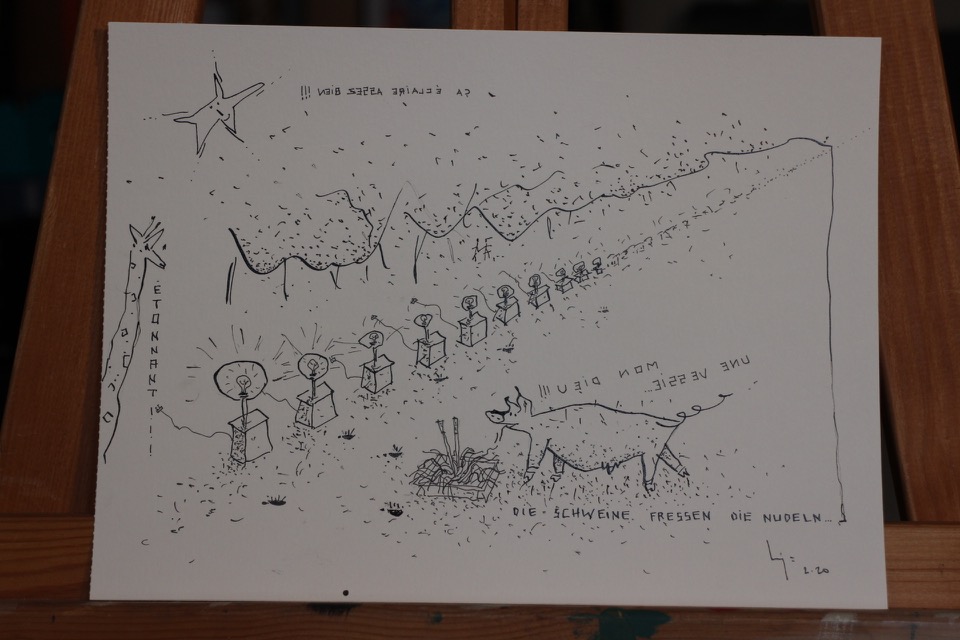 ÇA ÉCLAIRE ASSEZ BIEN !!!
ETONNANT!!!
UNE VESSIE...
MON DIEU !!!
DIE SCHWEINE FRESSEN DIE NUDELN...
2.20